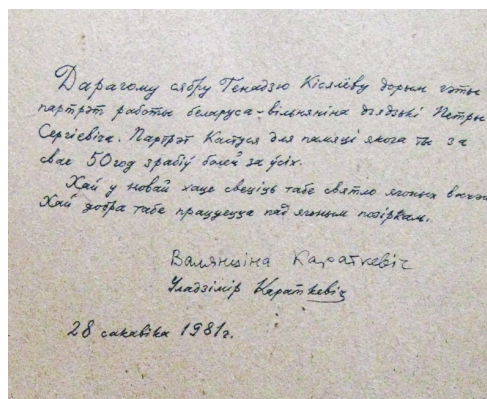 Дарагому сябру Генадзю Кісялёву дорым гэты
партрэт работы беларуса-вільняніна дзядзькі Петры
Сергіевіча. Партрэт Кастуся для памяці якога ты за
свае 50 год зрабіў болей за ўсіх.
Хай у новай хаце свеціць табе святло ягоных вачэй
Хай добра табе працуецца пад ягоным позіркам.
Валянціна Караткевіч
Уладзімір Караткевіч
28 сакавіка 1981г.